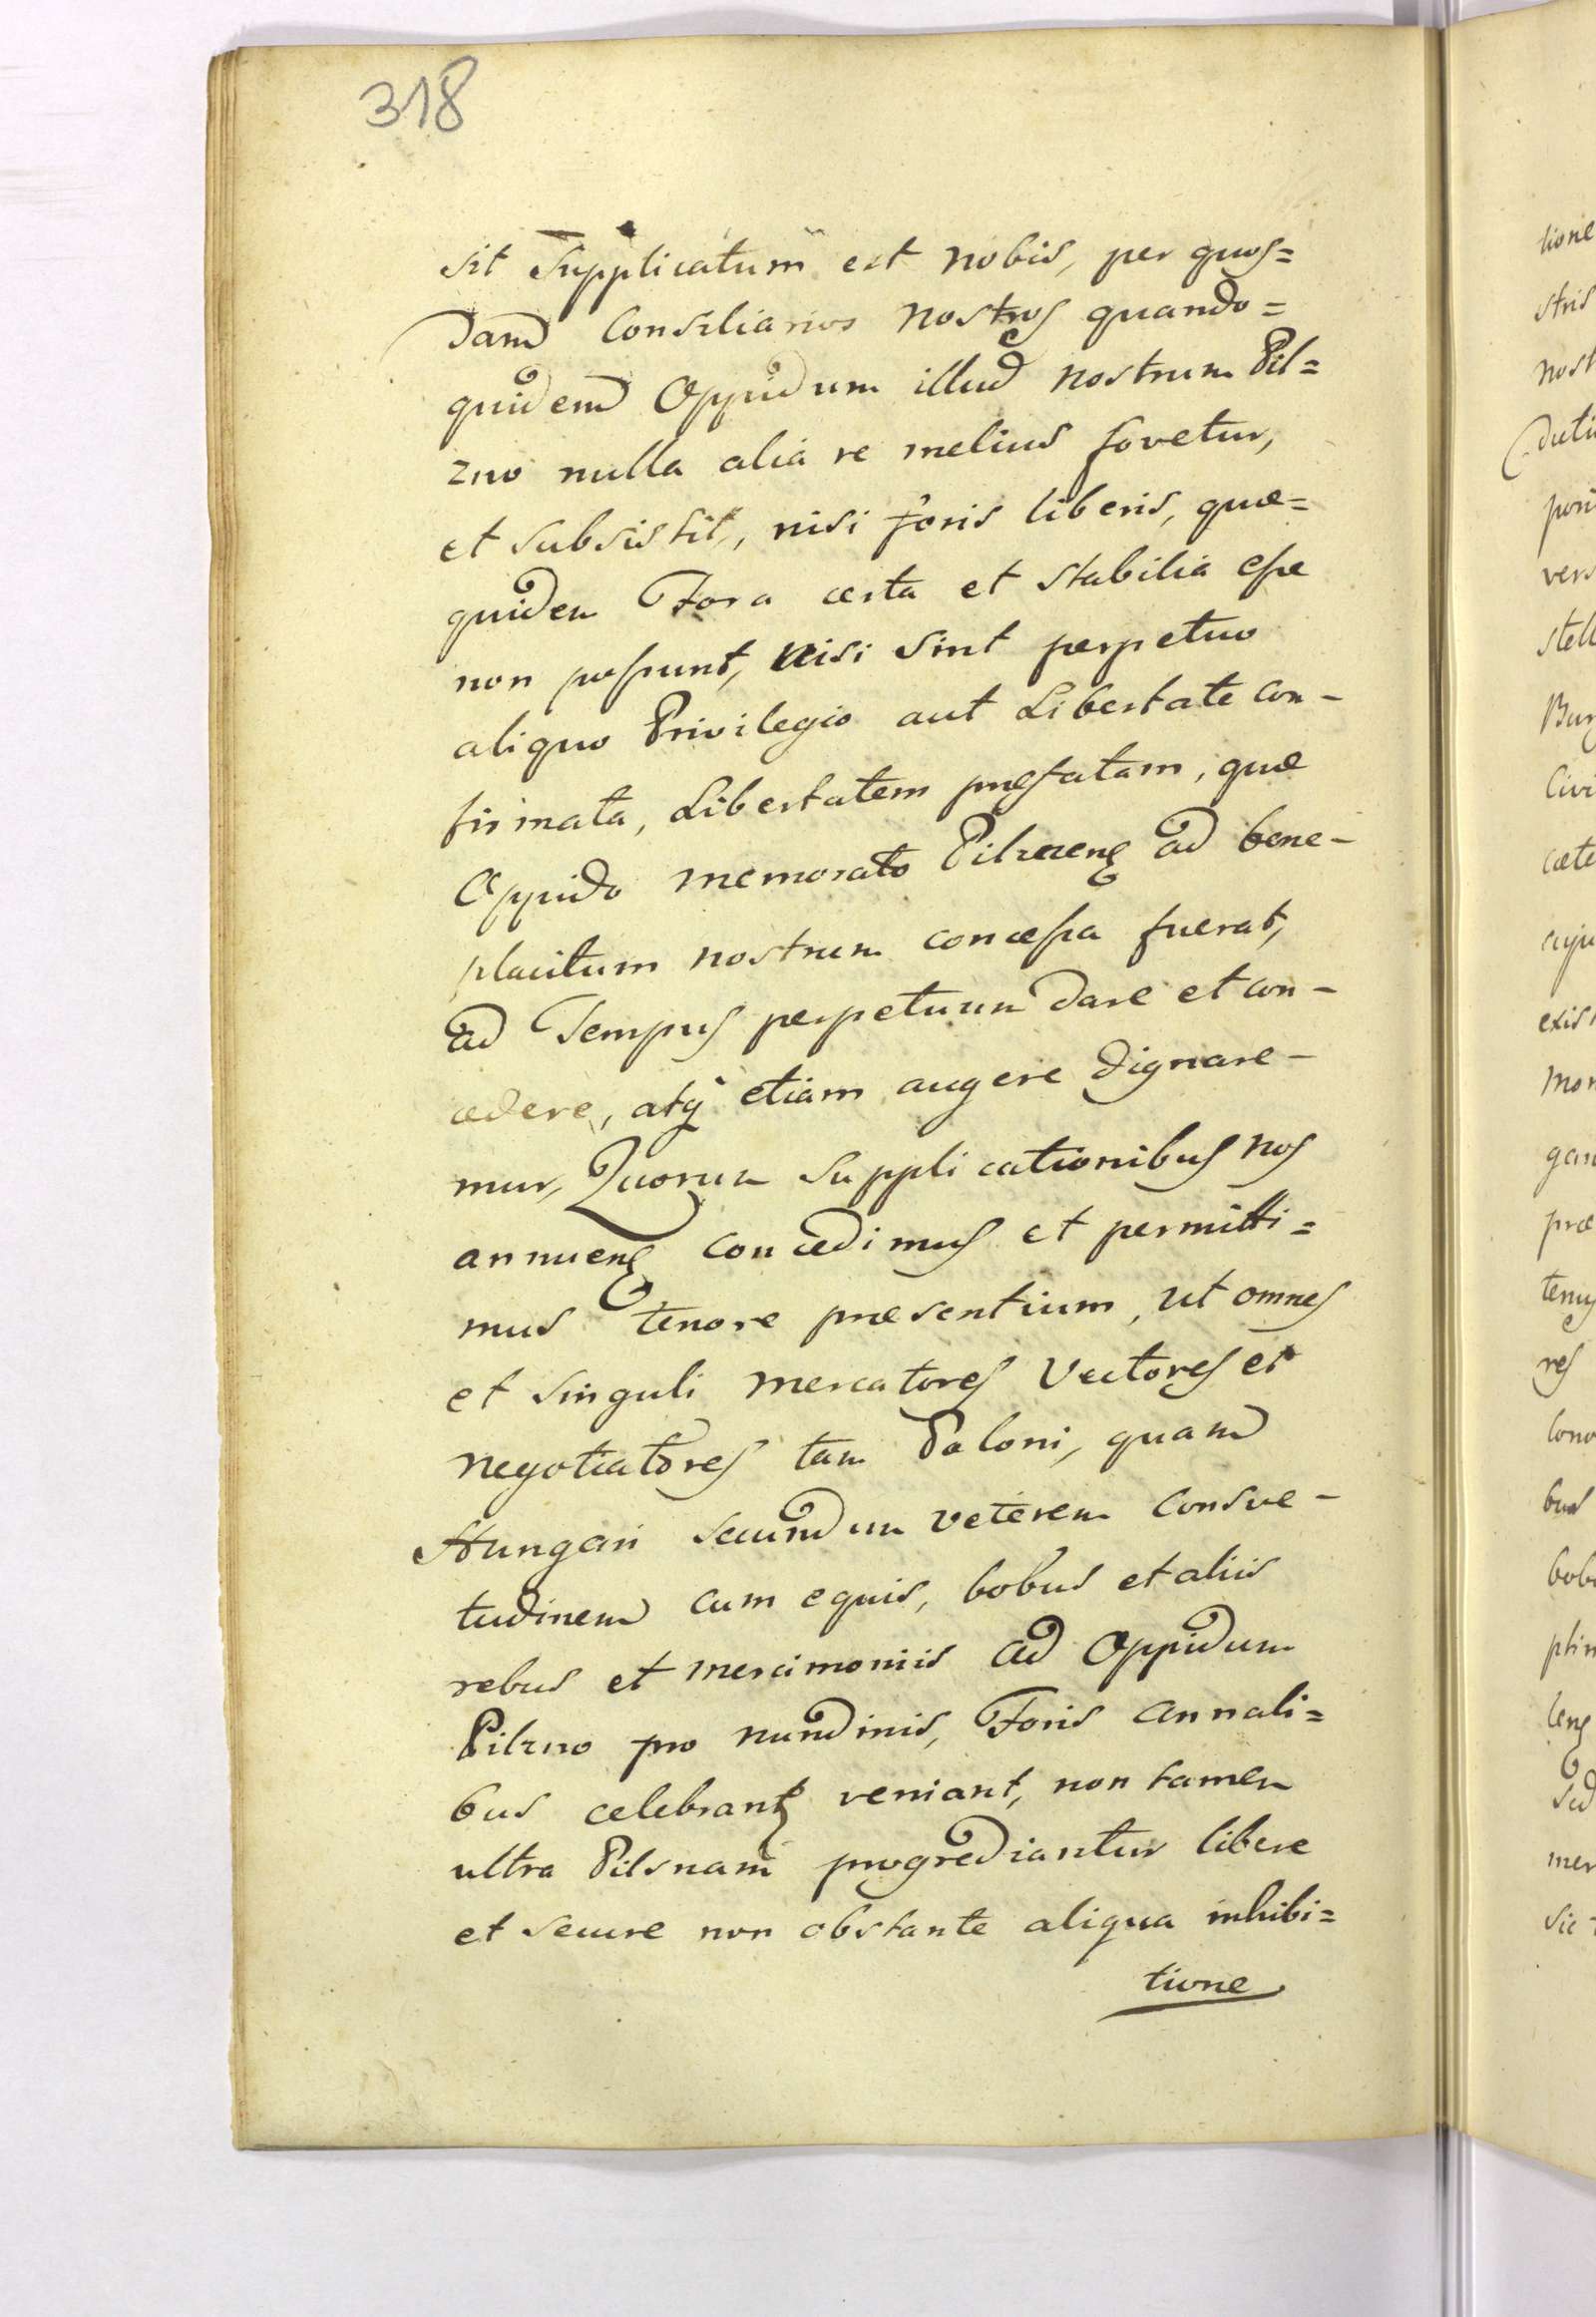 318
sit Supplicatum est nobis, per quos=
dam Consiliarios nostros quando=
quidem Oppidum illud nostrum Pil=
zno nulla alia re melius fovetur,
et subsistit, nisi foris liberis, quæ=
quidem Fora certa et stabilia esse
non possunt, nisi sint perpetuo
aliquo Privilegio aut Libertate con-
firmata, Libertatem præfatam, quæ
Oppido memorato Pilzneng ad bene-
placitum nostrum concessa fuerat,
ad Tempus perpetuum dare et con-
cedere, atq etiam augere dignare-
mur, Quorum supplicationibus nos
annueng concedimus et permitti=
mus tenore præsentium, ut omnes
et singuli mercatores Vectores et
negotiatores tam Poloni, quam
Hungari secundum veterem consve-
tudinem cum equis, bobus et aliis
rebus et mercimoniis ad Oppidum
Pilzno pro nundinis, Foris annali=
bus celebrantg veniant, non tamen
ultra Pilsnam progrediantur libere
et secure non obstante aliqua inhibi=
tione
tione
stris
nost
ducti
pori
vers
stell
Bur
Civi
cæte
cuju
exis
mon
gan
præ
tenus
res
cono
bus
bob
plin
leng
Sed
mer
sic